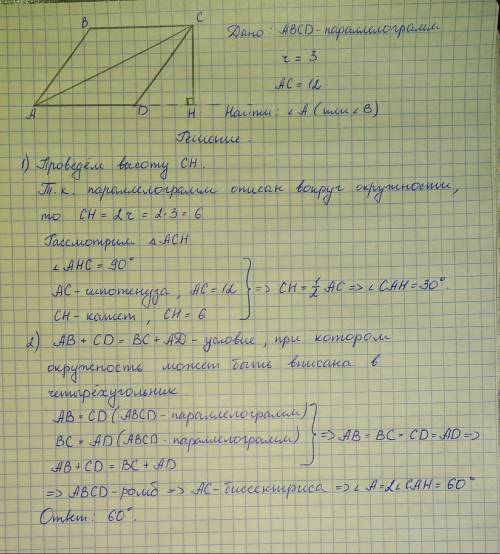 B
C
A
D
H
Дано: ABCD-параллелограмм
r = 3
AC = 12
Найти: ∠A (или ∠B)
Решение.
1) Проведём высоту CH.
Т.к. параллелограмм описан вокруг окружности,
то CH = 2r = 2·3 = 6
Рассмотрим △ACH
∠AHC = 90°
AC - гипотенуза, AC = 12
CH - катет, CH = 6
=> CH = 1/2 AC => ∠CAH = 30°.
2) AB + CD = BC + AD - условие, при котором
окружность может быть вписана в
четырёхугольник.
AB = CD (ABCD - параллелограмм)
BC = AD (ABCD - параллелограмм)
AB + CD = BC + AD
=> AB = BC = CD = AD =>
=> ABCD - ромб => AC - биссектриса => ∠A = 2∠CAH = 60°
Ответ: 60°.